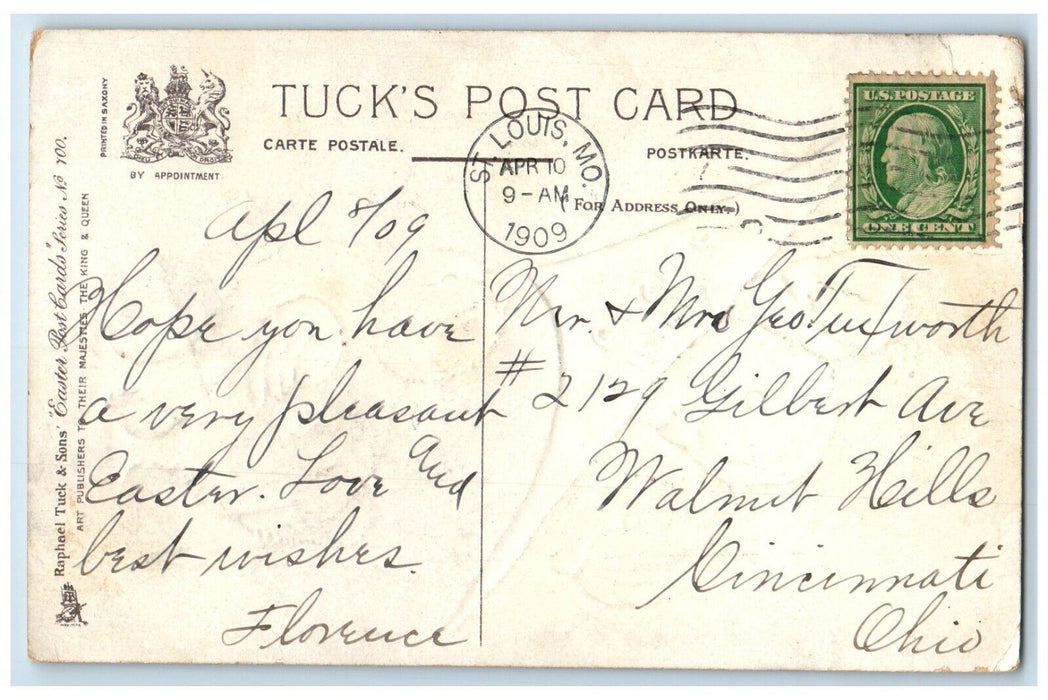 TUCK'S POST CARD
CARTE POSTALE.
POSTKARTE.
(FOR ADDRESS ONLY.)
PRINTED IN SAXONY
BY APPOINTMENT
Raphael Tuck & Sons' "Easter Post Cards" Series No 700.
ART PUBLISHERS TO THEIR MAJESTIES THE KING & QUEEN
ST. LOUIS, MO.
APR 10
9-AM
1909
U.S. POSTAGE
ONE CENT
Apl 8/09
Hope you have
a very pleasant
Easter. Love and
best wishes.
Florence
Mr. & Mrs Geo Tuxworth
# 2129 Gilbert Ave
Walnut Hills
Cincinnati
Ohio